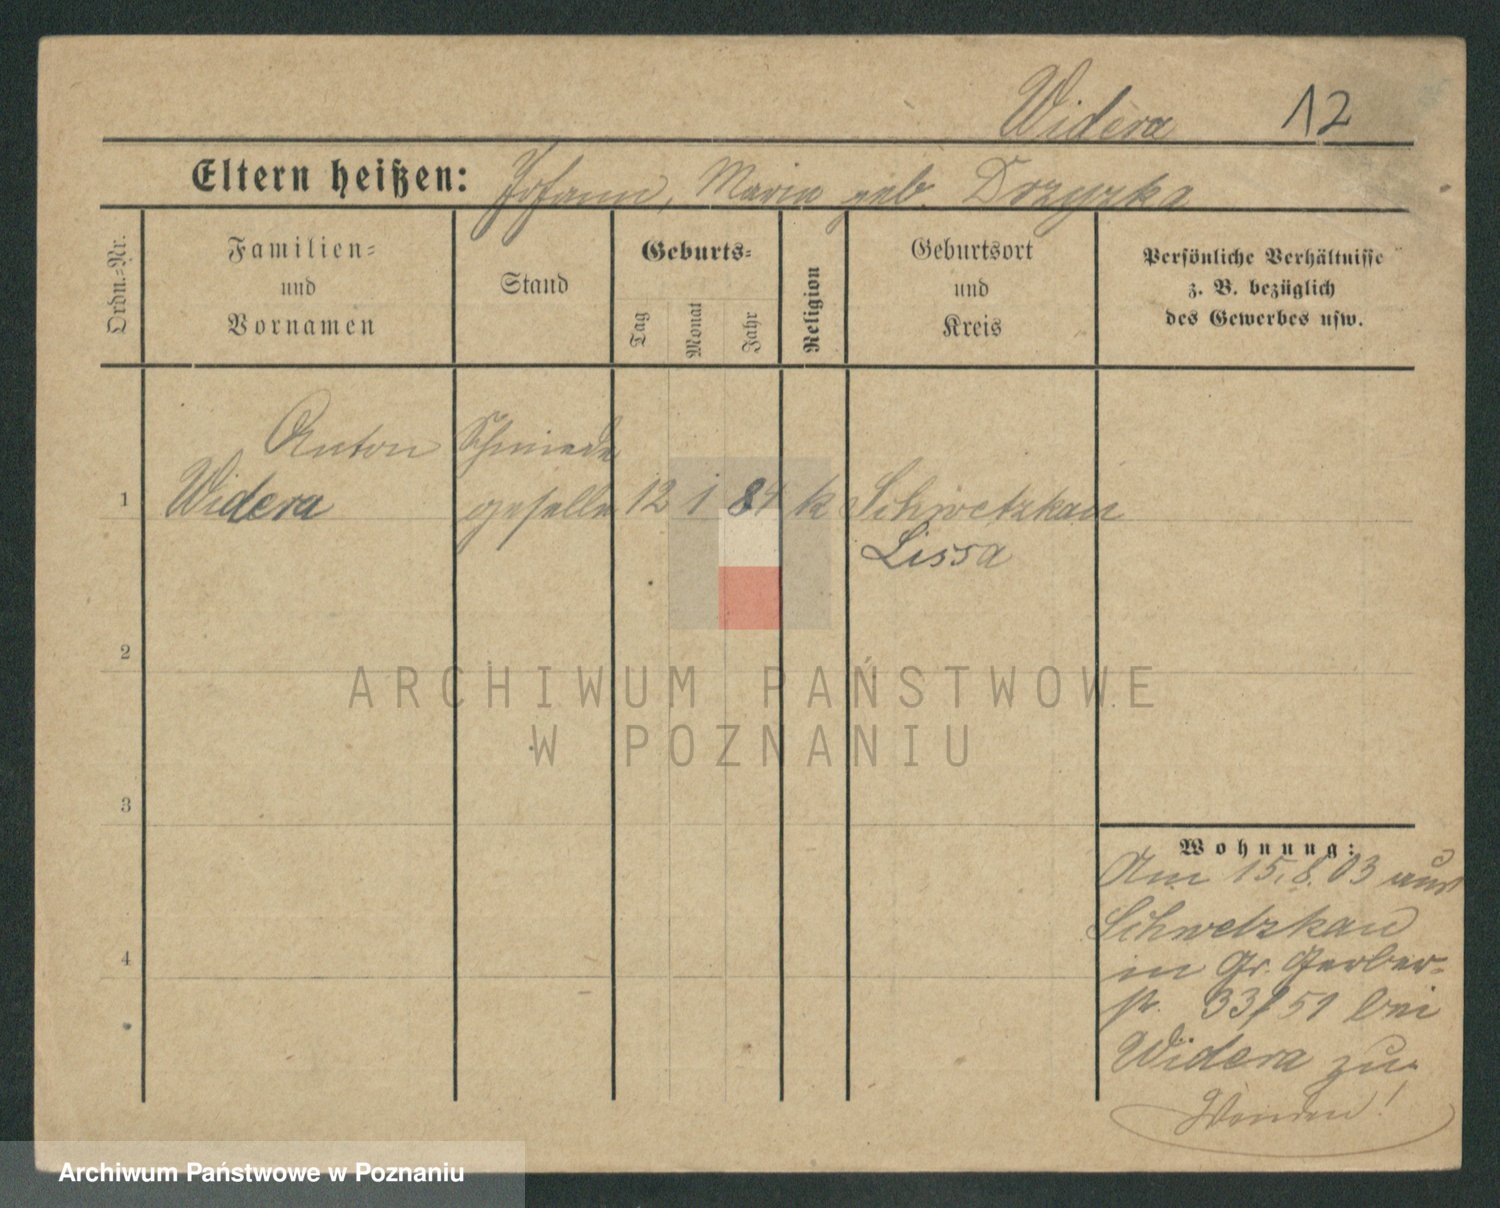 Widera 12
Eltern heißen: Johann, Maria geb. Drzyzka
Ordn.-Nr.
Familien-
und
Vornamen
Stand
Geburts-
Tag
Monat
Jahr
Religion
Geburtsort
und
Kreis
Persönliche Verhältnisse
z. B. bezüglich
des Gewerbes usw.
Anton Schmiede
1 Widera geselle 12 1 84 k Schwetzkau
Lissa
2
3
4
Wohnung:
Am 15.8.03 aus
Schwetzkau
in Gr. Gerber-
str. 33/51 bei
Widera zu.
Wenden!
ARCHIWUM PAŃSTWOWE
W POZNANIU
Archiwum Państwowe w Poznaniu